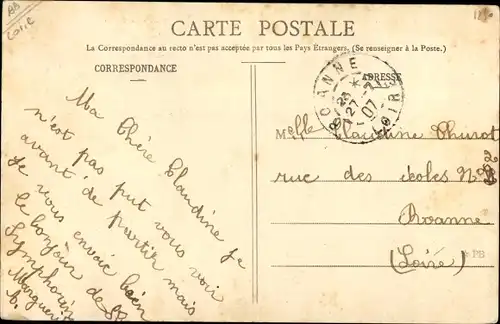 CARTE POSTALE
La Correspondance au recto n'est pas acceptée par tous les Pays Étrangers. (Se renseigner à la Poste.)
CORRESPONDANCE
ADRESSE
ROANNE
27-7
07
LOIRE
Ma Chère Claudine je
n'est pas put vous voir
avant de partir mais
je vous envoie bien
le bonjour de St
Symphorien
M elle Claudine
rue des écoles N
Roanne
(Loire)